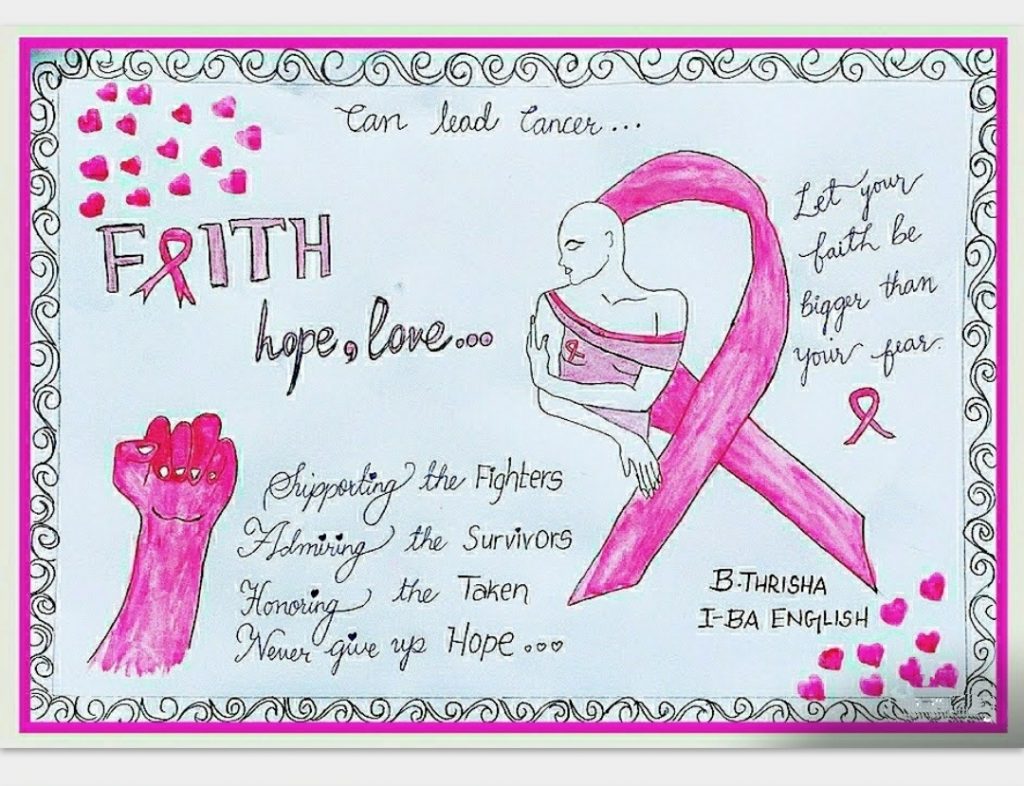 Can lead Cancer...
FAITH
hope, love...
Let your
faith be
bigger than
your fear.
Supporting the Fighters
Admiring the Survivors
Honoring the Taken
Never give up Hope...
B.THRISHA
I-BA ENGLISH